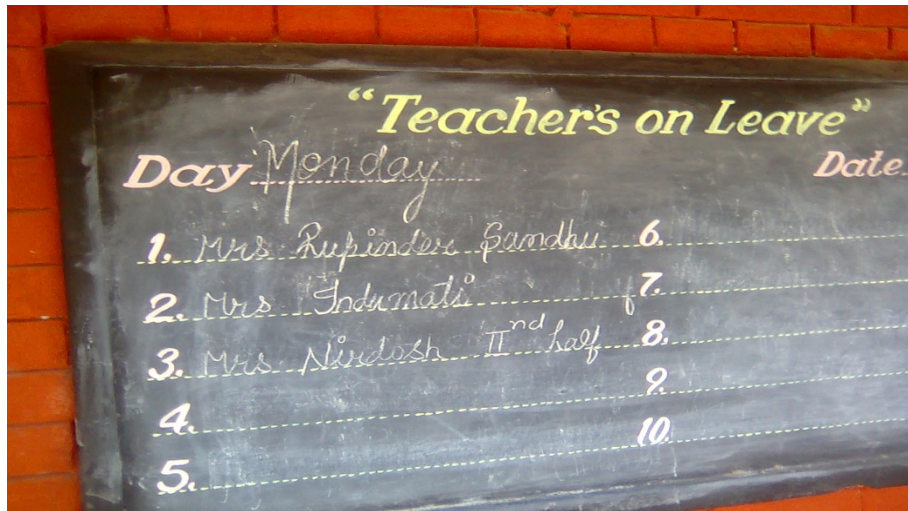 “Teacher's on Leave”
Day Monday Date
1. Mrs Rupinder Sandhu
2. Mrs Indumati
3. Mrs Nirdosh IInd half
4.
5.
6.
7.
8.
9.
10.